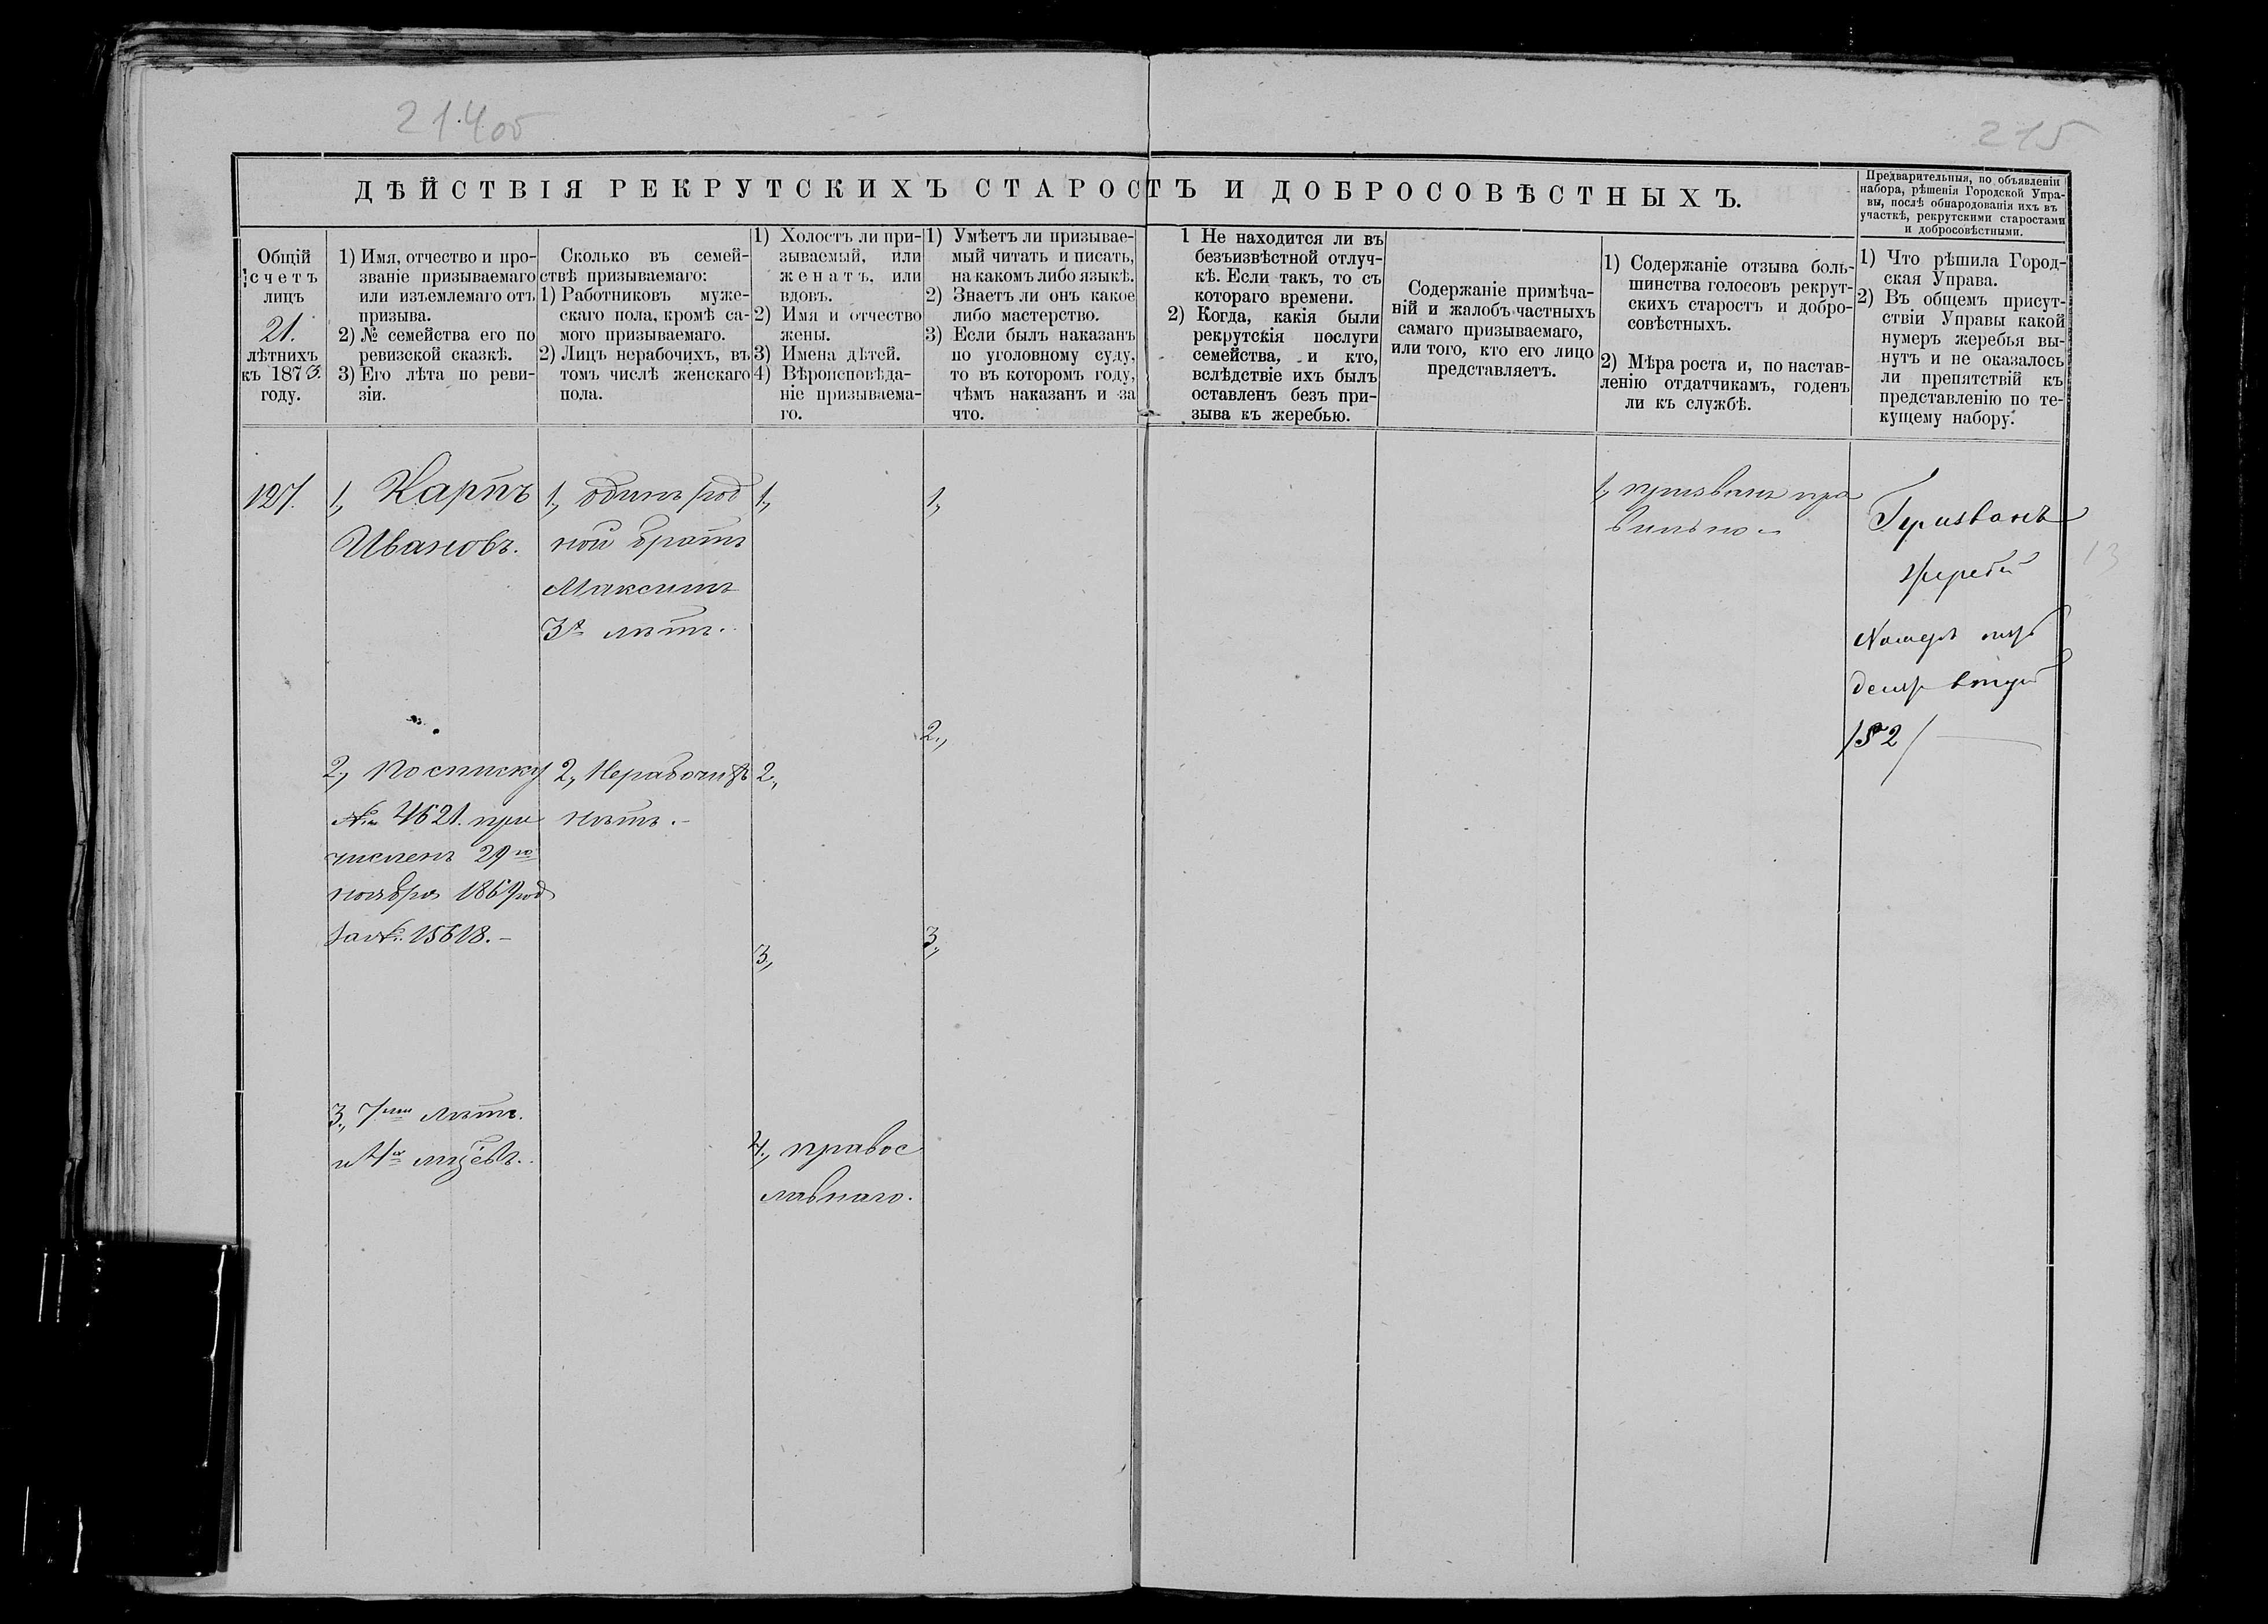 214 об
215
ДѢЙСТВІЯ РЕКРУТСКИХЪ СТАРОСТЪ И ДОБРОСОВѢСТНЫХЪ.
Предварительныя, по объявленіи
набора, рѣшенія Городской Упра-
вы, послѣ обнародованія ихъ въ
участкѣ, рекрутскими старостами
и добросовѣстными.
Общій
счетъ
лицъ
21.
лѣтнихъ
къ 1873.
году.
1) Имя, отчество и про-
званіе призываемаго
или изъемлемаго отъ
призыва.
2) № семейства его по
ревизской сказкѣ.
3) Его лѣта по реви-
зіи.
Сколько въ семей-
ствѣ призываемаго:
1) Работниковъ муже-
скаго пола, кромѣ са-
мого призываемаго.
2) Лицъ нерабочихъ, въ
томъ числѣ женскаго
пола.
1) Холостъ ли при-
зываемый, или
женатъ, или
вдовъ.
2) Имя и отчество
жены.
3) Имена дѣтей.
4) Вѣроисповѣда-
ніе призываема-
го.
1) Умѣетъ ли призывае-
мый читать и писать,
на какомъ либо языкѣ.
2) Знаетъ ли онъ какое
либо мастерство.
3) Если былъ наказанъ
по уголовному суду,
то въ которомъ году,
чѣмъ наказанъ и за
что.
1 Не находится ли въ
безъизвѣстной отлуч-
кѣ. Если такъ, то съ
котораго времени.
2) Когда, какія были
рекрутскія послуги
семейства, и кто,
вслѣдствіе ихъ былъ
оставленъ безъ при-
зыва къ жеребью.
Содержаніе примѣча-
ній и жалобъ частныхъ
самаго призываемаго,
или того, кто его лицо
представляетъ.
1) Содержаніе отзыва боль-
шинства голосовъ рекрут-
скихъ старостъ и добро-
совѣстныхъ.
2) Мѣра роста и, по настав-
ленію отдатчикамъ, годенъ
ли къ службѣ.
1) Что рѣшила Город-
ская Управа.
2) Въ общемъ присут-
ствіи Управы какой
нумеръ жеребья вы-
нутъ и не оказалось
ли препятствій къ
представленію по те-
кущему набору.
127.
1, Карпъ
Ивановъ.
2, По списку
№ 4621. при
численъ 29го
ноября 1861 год
за № 15618.-
3, 7ми лѣтъ.
и 4х мцевъ.
1, одинъ род
ной братъ
Максимъ
лѣтъ.
2, Нерабочихъ
нѣтъ.-
1,
2,
3,
4, правос
лавнаго.
1,
2,
3,
1, призванъ пра
вильно
Призванъ
жеребій
Номеръ
152/
13